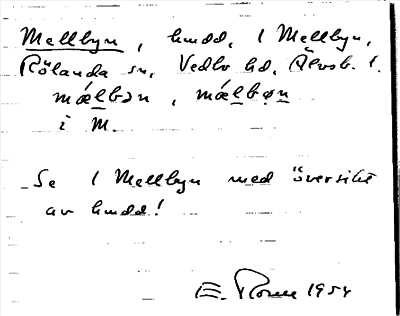 Mellbyn, hmdd, 1 Mellbyn,
Rölanda sn, Vedbo hd, Älvsb. l.
mælbən, mælbøn
i M.
Se 1 Mellbyn med översikt
av hmdd!
E. 1954